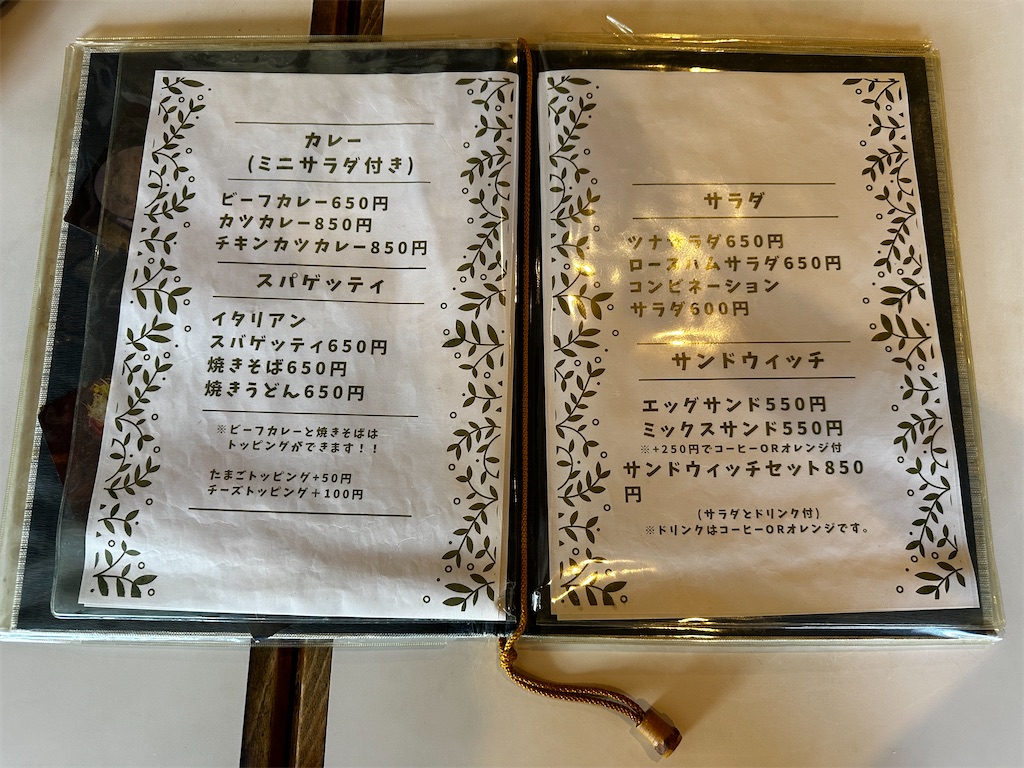 カレー
(ミニサラダ付き)
ビーフカレー650円
カツカレー850円
チキンカツカレー850円
スパゲッティ
イタリアン
スパゲッティ650円
焼きそば650円
焼きうどん650円
※ビーフカレーと焼きそばは
トッピングができます!!
たまごトッピング+50円
チーズトッピング+100円
サラダ
ツナサラダ650円
ロースハムサラダ650円
コンビネーション
サラダ600円
サンドウィッチ
エッグサンド550円
ミックスサンド550円
※+250円でコーヒーORオレンジ付
サンドウィッチセット850
円
(サラダとドリンク付)
※ドリンクはコーヒーORオレンジです。